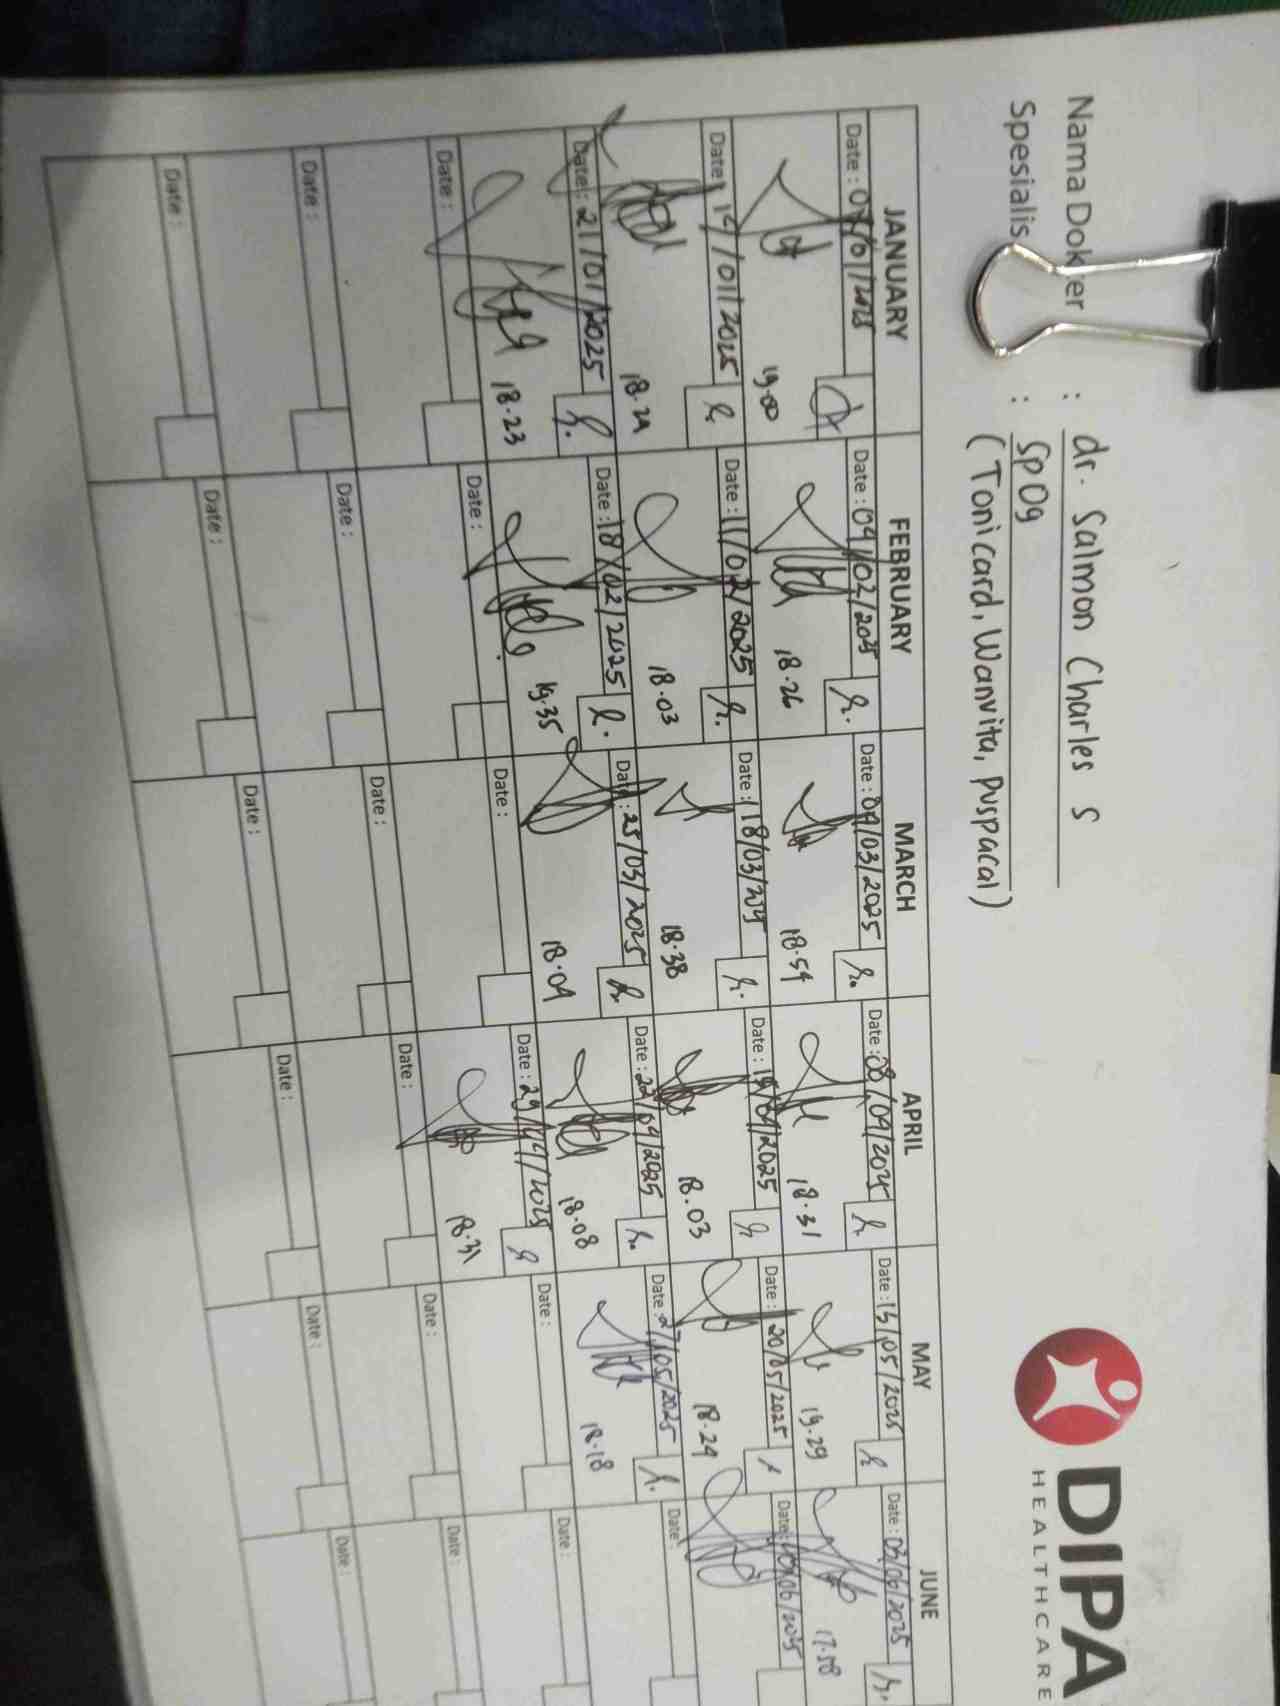 DIPA
HEALTHCARE
Nama Dokter : dr. Salmon Charles S
Spesialis : SpOg
(Tonicard, Wanvita, Puspacal)
JANUARY FEBRUARY MARCH APRIL MAY JUNE
Date : 07/01/2025 Date : 04/02/2025 Date : 04/03/2025 Date : 08/04/2025 Date : 13/05/2025 Date : 03/06/2025
19.00 18.26 18.54 18.31 19.29 17.58
Date : 14/01/2025 Date : 11/02/2025 Date : 18/03/2025 Date : 15/04/2025 Date : 20/05/2025 Date :
18.24 18.03 18.38 18.03 18.24
Date : 21/01/2025 Date : 18/02/2025 Date : 25/03/2025 Date : 22/04/2025 Date : 27/05/2025 Date :
18.23 19.35 18.09 18.08 18.18
Date : Date : Date : Date : 29/04/2025 Date : Date :
18.31
Date : Date : Date : Date : Date : Date :
Date : Date : Date : Date : Date : Date :